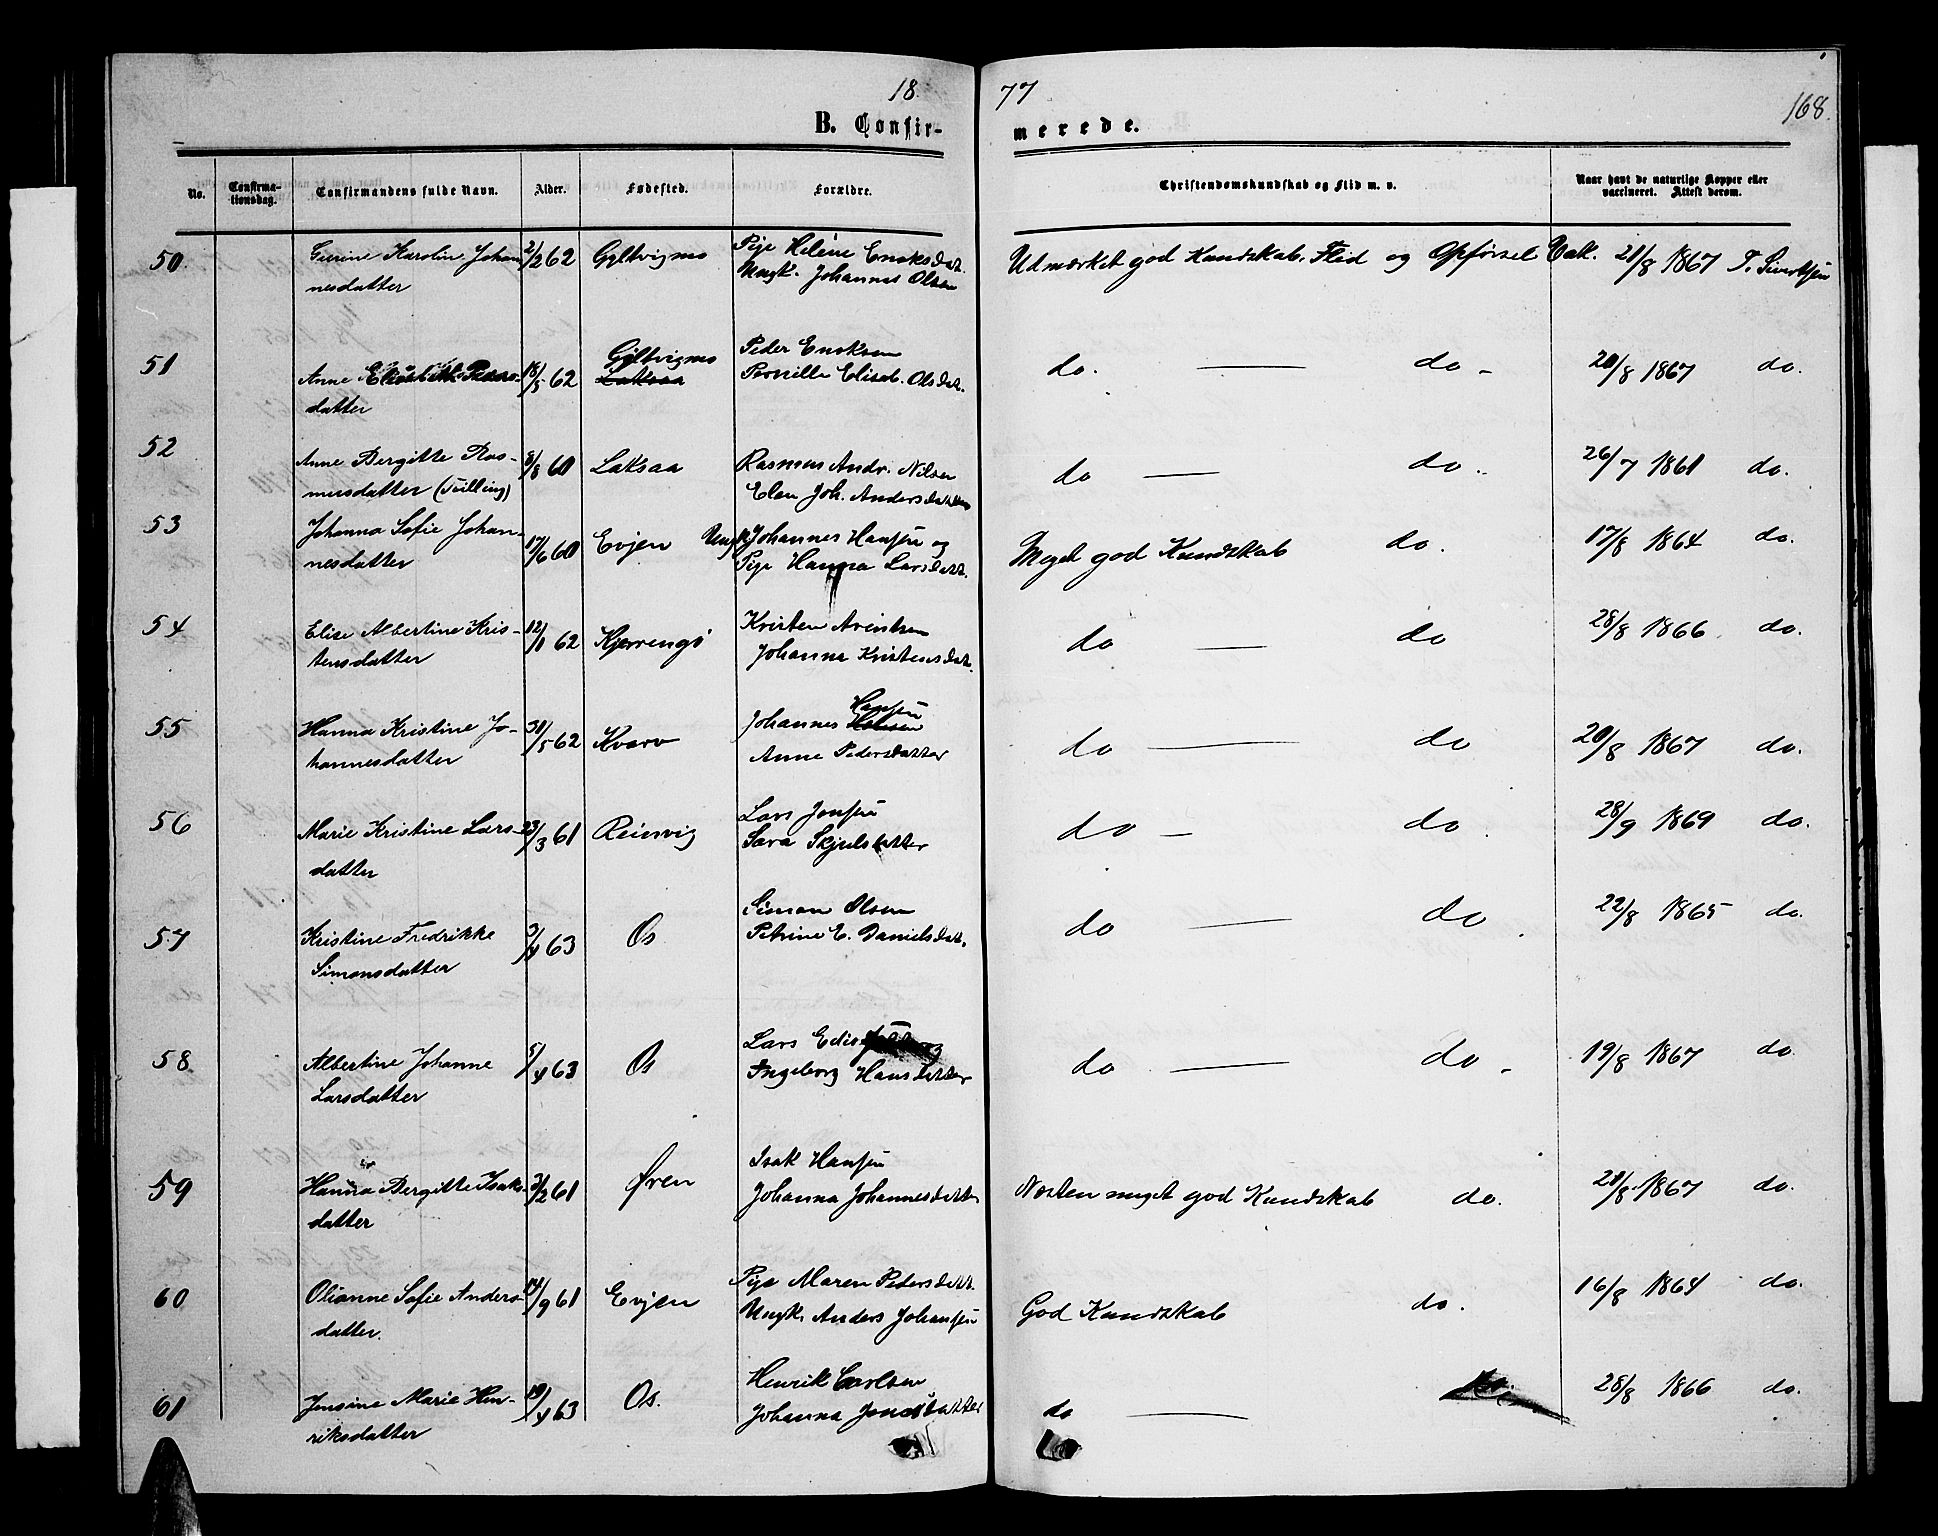 18 77
168.
B. Confir- merede.
No. Confirma- tionsdag. Confirmandens fulde Navn. Alder. Fødested. Forældre. Christendomskundskab og Flid m. v. Naar havt de naturlige Kopper eller vaccineret. Attest derom.
50. Karolin Johan- 2/2 62 Gyltvignes Pige Helene Enoksdat. Udmærket god Kundskab, Flid og Opførsel Vak. 21/8 1867 T. Sivertsen
nesdatter Ungk. Johannes Olsen
51 Gyltvignes Peder Enoksen
Anne Elisabeth Peders- 18/5 62 Laksaa Pernille Elisab. Olsdat. do. do - 20/8 1867 do.
datter
52 Anne Bergitte Ras- 8/8 60 Laksaa Rasmus Andr. Nilsen do do. 26/7 1861 do.
musdatter (Tvilling) Elen Joh. Andersdatter
53 Johanna Sofie Johan- 17/6 60 Evjen Ungk. Johannes Hansen og Meget god Kundskab do. 17/8 1864 do.
nesdatter Pige Hanna Larsdatt.
54 Elise Albertine Kris- 12/1 62 Kjerringø Kristen Arentsen do do 28/8 1866 do.
tensdatter Johanna Kristensdat.
55 Hanna Kristine Jo- 31/5 62 Kvarv Johannes Hansen do do 20/8 1867 do.
hannesdatter Anne Pedersdatter
56 Marie Kristine Lars- 23/3 61 Reinsvig Lars Jonsen do - do. 28/9 1869 do.
datter Sara Skjelsdatter
57 Kristine Fredrikke 3/4 63 Os Simon Olsen do do. 22/8 1865 do.
Simonsdatter Petrine E. Danielsdat.
58 Albertine Johanne 5/4 63 Os Lars do. do - 19/8 1867 do.
Larsdatter Ingeborg Hansdatter
59 Hanna Bergitte Isaks- 3/2 61 Øren Isak Hansen Næsten meget god Kundskab do. 20/8 1867 do.
datter Johanna Johannesdatter
60 Olianne Sofie Anders- 14/9 61 Evjen Pige Maren Pedersdatt. God Kundskab do. 16/8 1864 do.
datter. Ungk. Anders Johansen
61 Jensine Marie Hen- 19/4 63 Os. Henrik Carlsen do do. 28/8 1866 do.
riksdatter Johanna Jonasdatter